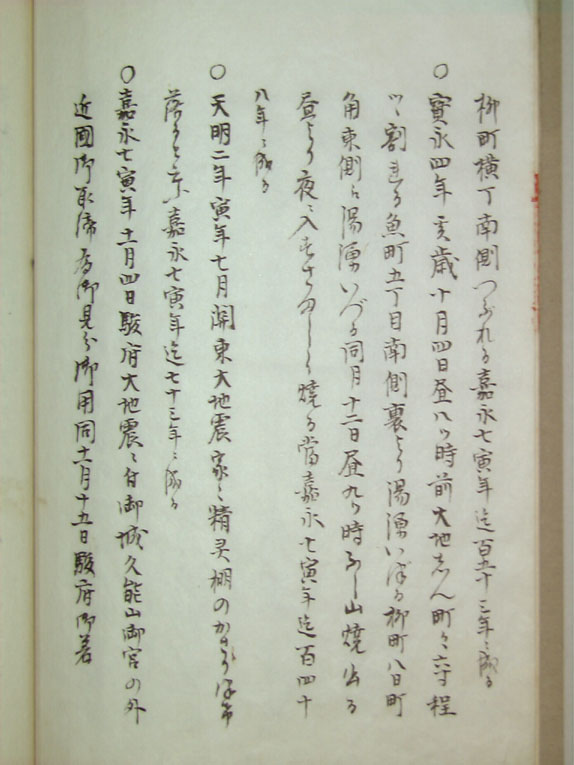 柳町横丁南側つぶれる嘉永七寅年迄百五十三年ニ成る
○寳永四年亥歳十月四日昼八ツ時前大地志ん町々六寸程
ツヽ割れる魚町五丁目南側裏より湯湧いづる柳町八日町
角東側ゟ湯湧いづる同月十二日昼九ツ時 山焼出る
昼より夜ニ入 焼る當嘉永七寅年迄百四十
八年ニ成る
○天明二年寅年七月関東大地震家々精灵棚のかざり不
落 嘉永七寅年迄七十三年ニ成る
○嘉永七寅年十一月四日駿府大地震ニ付御城久能山御宮の外
近國御取締為御見分御用同十一月十五日駿府御着